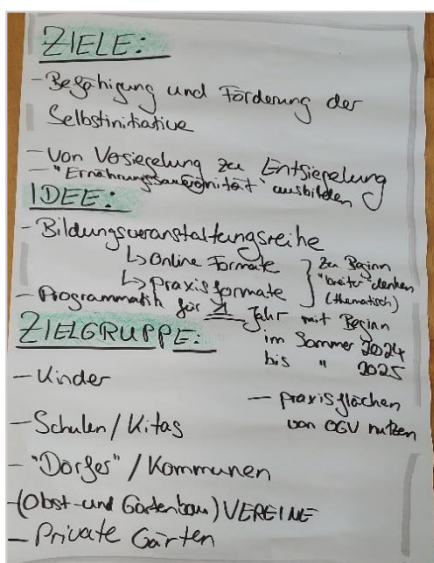 ZIELE:
- Befähigung und Förderung der
Selbstinitiative
- von Versiegelung zu Entsiegelung
- "Ernährungssouveränität" ausbilden
IDEE:
- Bildungsveranstaltungsreihe
↳ Online Formate
↳ praxisformate
zu Beginn
"breiter" denken
(thematisch)
- Programmatik für 1 Jahr mit Beginn
im Sommer 2024
bis " 2025
ZIELGRUPPE:
- Kinder
- praxisflächen
von OGV nutzen
- Schulen / Kitas
- "Dörfer" / Kommunen
- (Obst- und Gartenbau) VEREINE
- Private Gärten